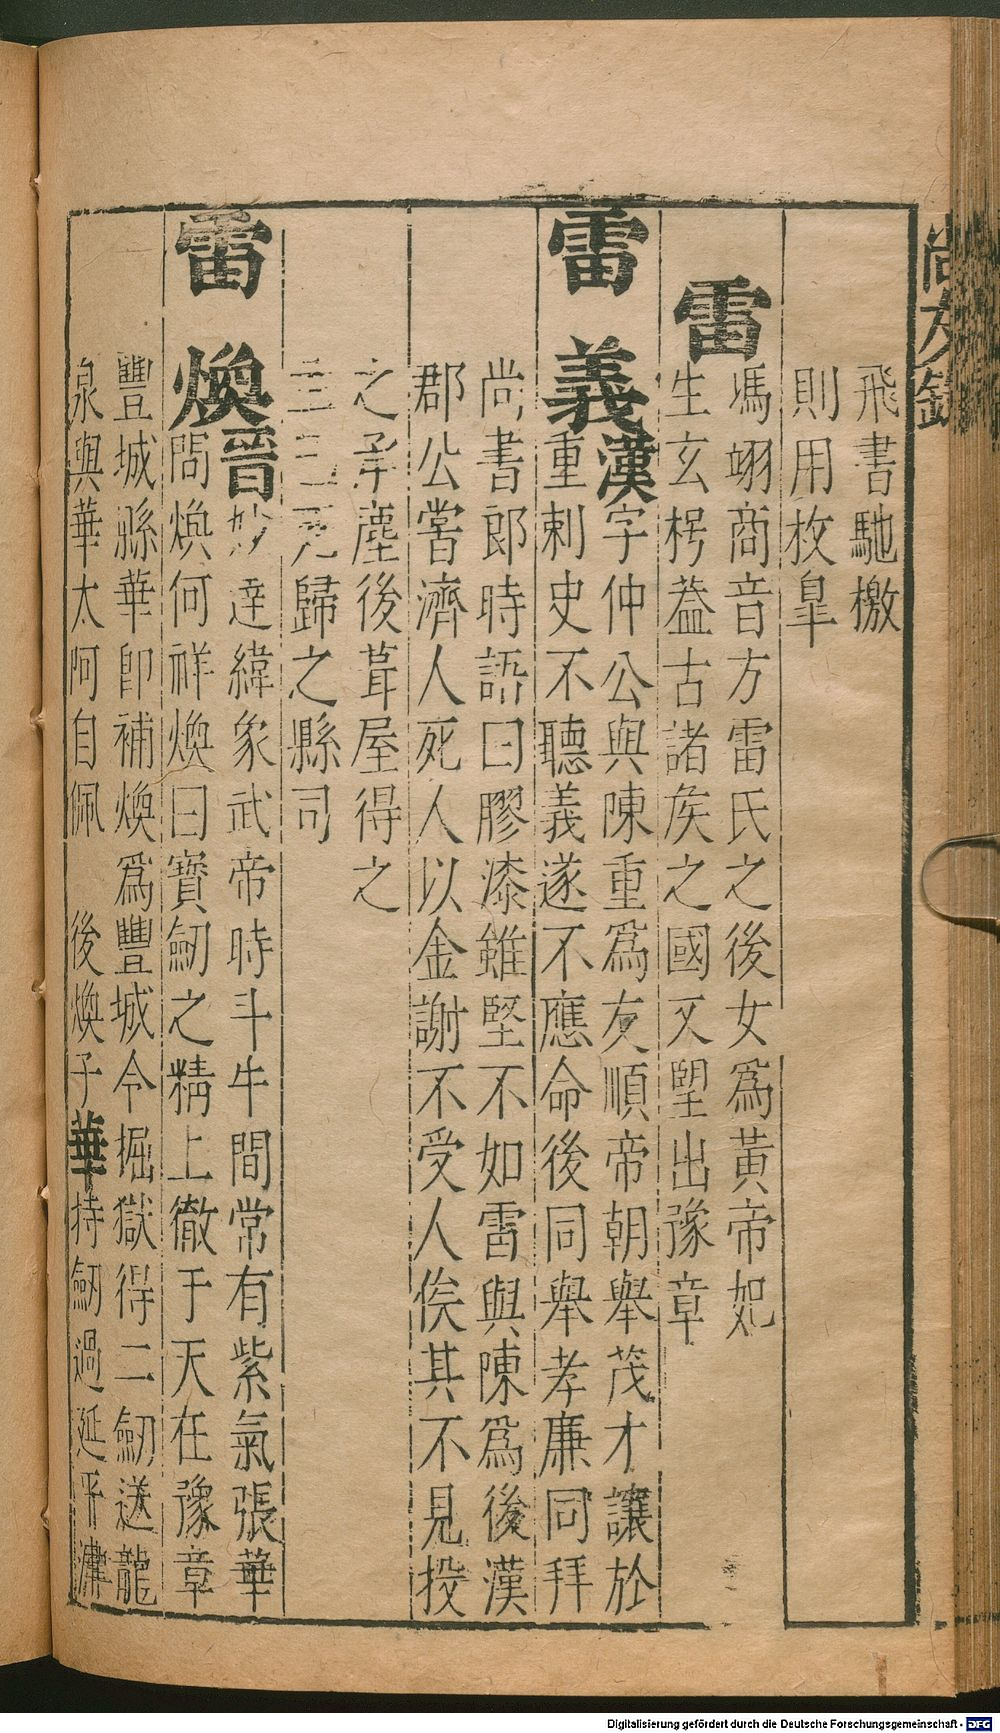 尚友錄
飛書馳檄
則用枚臯
雷
馮翊商音方雷氏之後女為黃帝妃
生玄枵葢古諸矦之國又望出豫章
雷義漢字仲公與陳重爲友順帝朝舉茂才讓於
重刺史不聽義遂不應命後同舉孝廉同拜
尚書郎時語曰膠漆雖堅不如雷與陳爲後漢
郡公嘗濟人死人以金謝不受人俟其不見投
之承塵後葺屋得之
三已死歸之縣司
雷煥晉妙達緯象武帝時斗牛間常有紫氣張華
問煥何祥煥曰寶劒之精上徹于天在豫章
豐城縣華卽補煥爲豐城令掘獄得二劒送龍
泉與華太阿自佩 後煥子華持劒過延平津
Digitalisierung gefördert durch die Deutsche Forschungsgemeinschaft - DFG